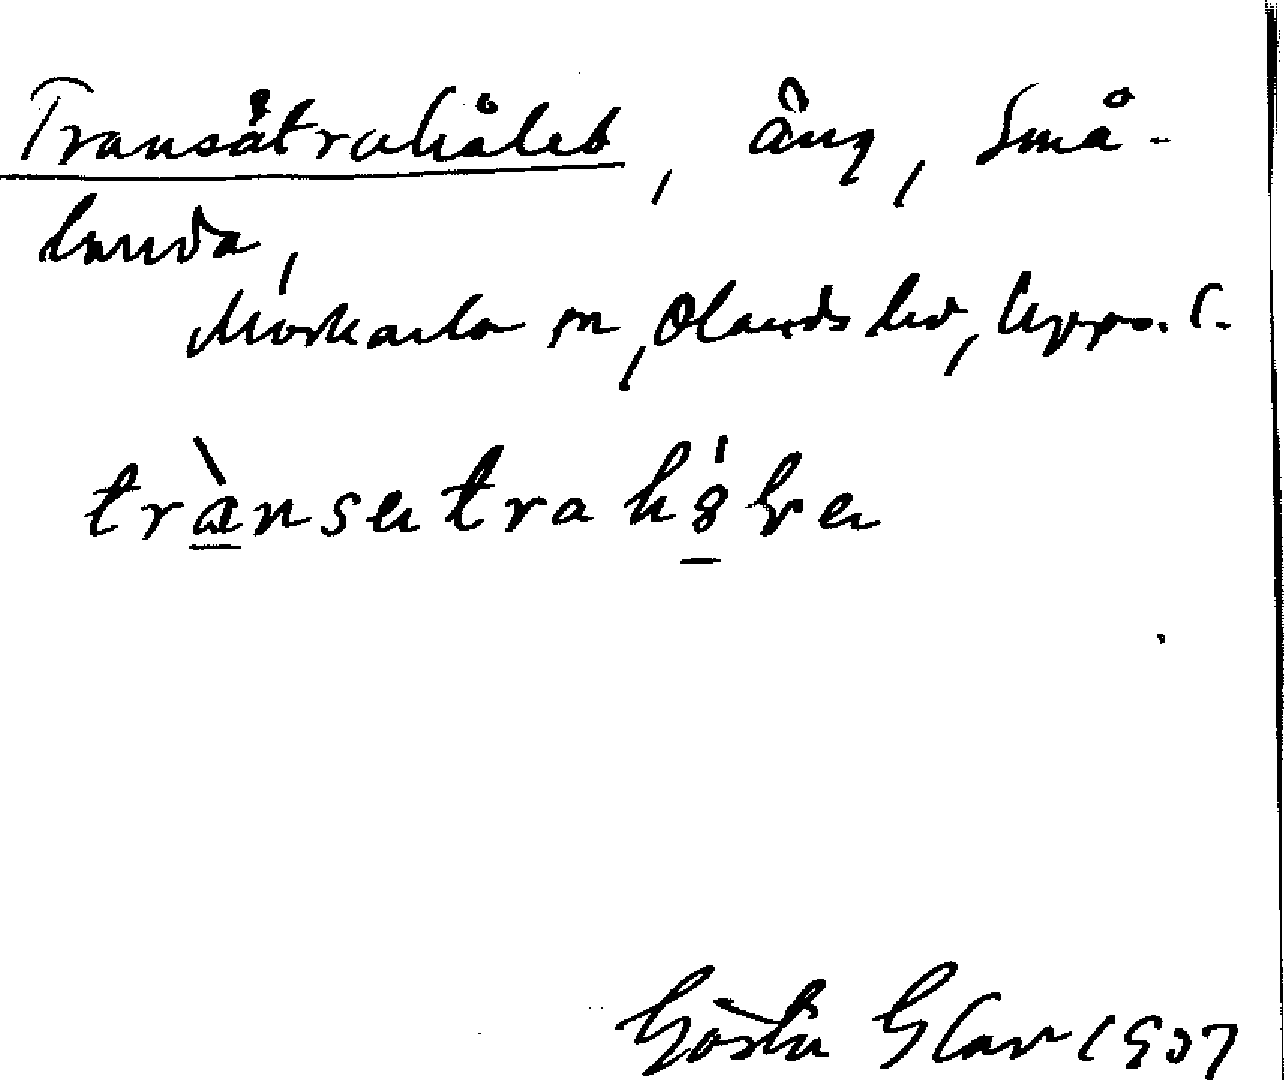 Transätrahålet, äng, Små-
landa,
Morkarla sn, Olands hd, Upps. l.
trànsätrahó̱lɐ
Gösta Glav 1937